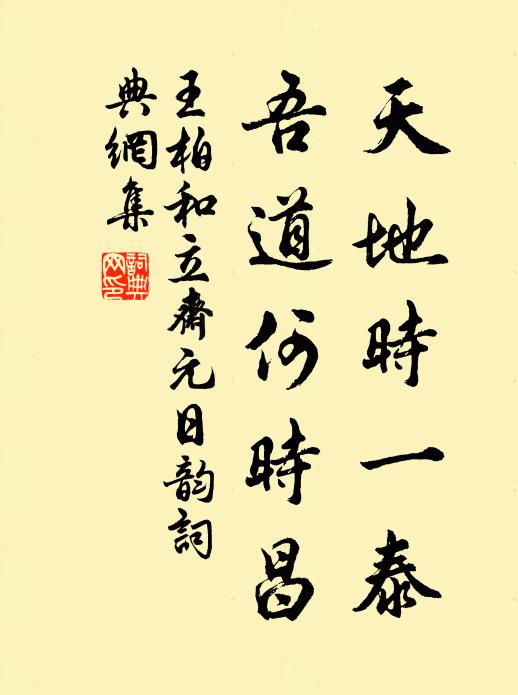 天地時一泰
吾道何時昌
王柏和立齋元日韵詞
典網集
詞典網印